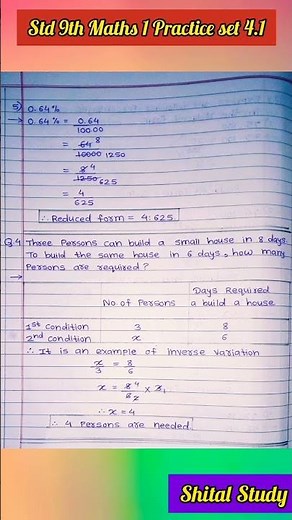 Std 9th Maths 1 Practice set 4.1
5) 0.64%
→ 0.64% = 0.64
10000
= 64 8
10000 1250
= 8 4
1250 625
= 4
625
∴ Reduced form = 4:625
Q.4 Three Persons can build a small house in 8 days.
To build the same house in 6 days, how many
Persons are required?
→
Days Required
No. of Persons a build a house
1st condition 3 8
2nd condition x 6
∴ It is an example of inverse variation
x/3 = 8/6
x = 8 4/6 2 × 3 1
∴ x = 4
∴ 4 Persons are needed
Shital Study